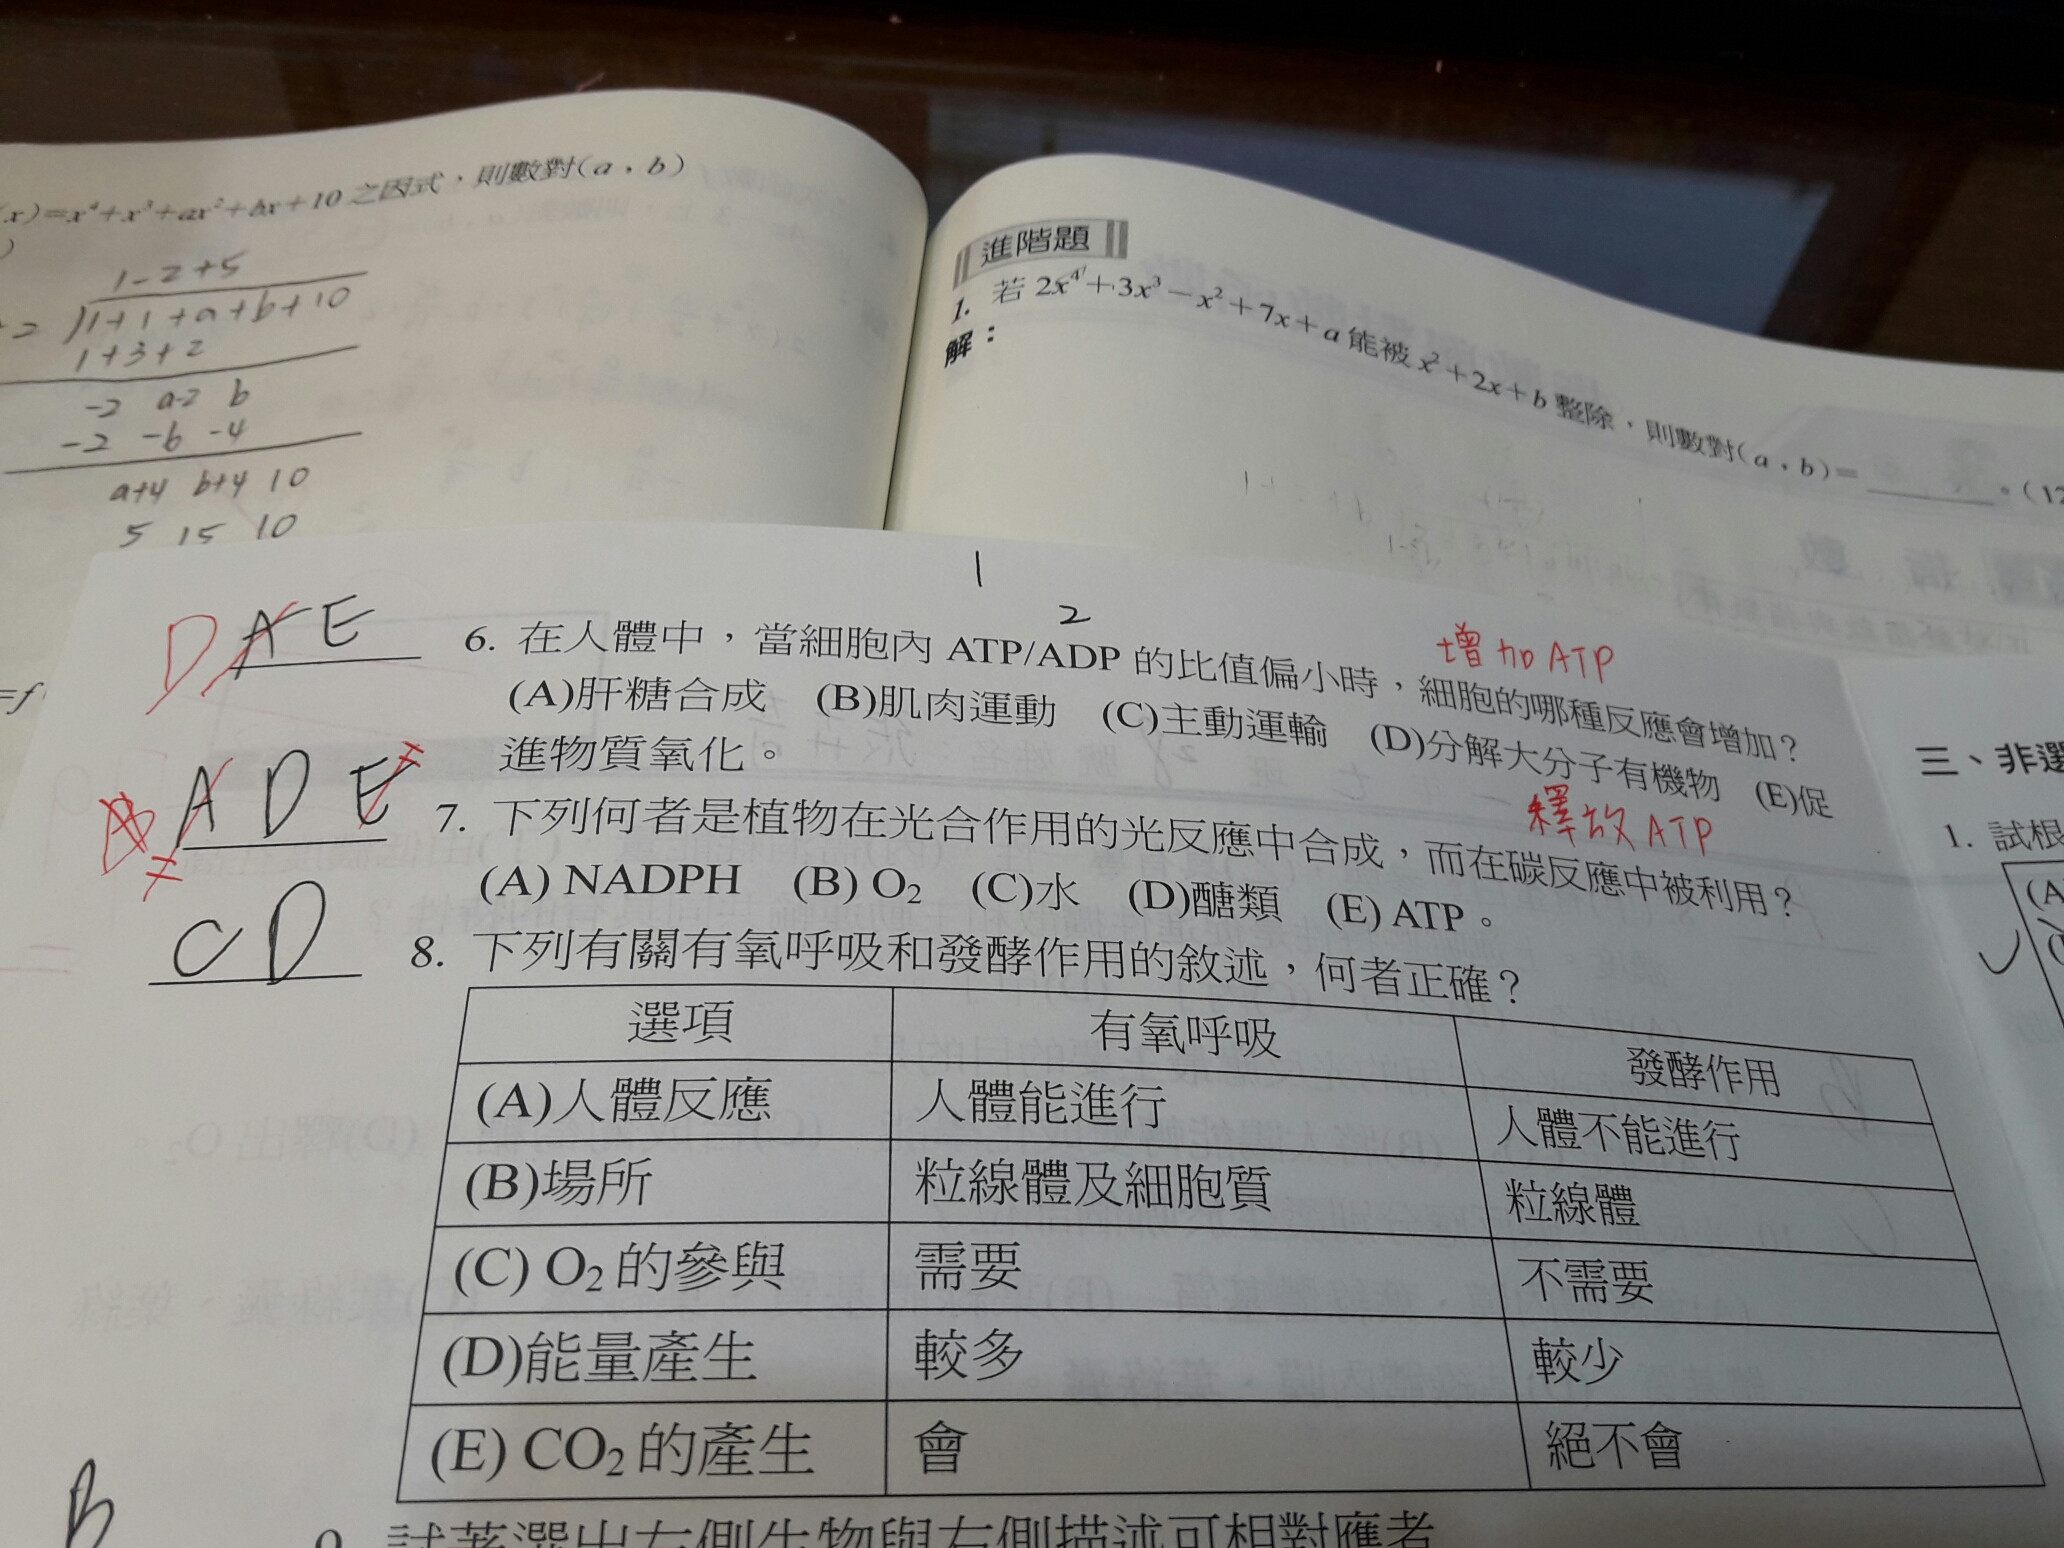 (x)=x⁴+x³+ax²+bx+10 之因式，則數對(a，b)
1-2+5
1+1+a+b+10
1+3+2
-2 a-2 b
-2 -6 -4
a+4 b+4 10
5 15 10
進階題
1. 若 2x⁴+3x³－x²+7x+a 能被 x²+2x+b 整除，則數對(a，b)=＿＿＿。(12
解：
指 數
1
2
D A E
6. 在人體中，當細胞內 ATP/ADP 的比值偏小時，細胞的哪種反應會增加？
增加ATP
(A)肝糖合成 (B)肌肉運動 (C)主動運輸 (D)分解大分子有機物 (E)促
進物質氧化。
釋放ATP
A D E
7. 下列何者是植物在光合作用的光反應中合成，而在碳反應中被利用？
(A) NADPH (B) O₂ (C)水 (D)醣類 (E) ATP。
C D
8. 下列有關有氧呼吸和發酵作用的敘述，何者正確？
選項 有氧呼吸 發酵作用
(A)人體反應 人體能進行 人體不能進行
(B)場所 粒線體及細胞質 粒線體
(C) O₂ 的參與 需要 不需要
(D)能量產生 較多 較少
(E) CO₂ 的產生 會 絕不會
B
9. 試著選出左側生物與右側描述可相對應者
三、非選
1. 試根
(A